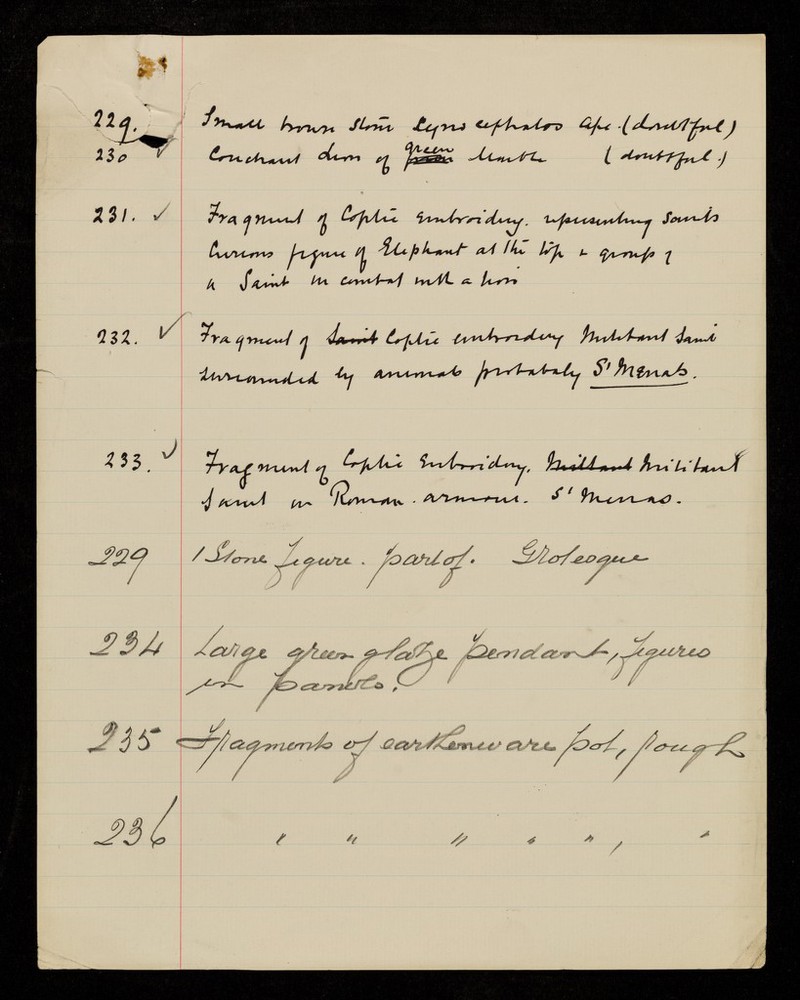 229. Small brown stone Cynocephalos Ape. (doubtful)
230 ✓ Couchant Lion of green Marble (doubtful.)
231. ✓ Fragment of Coptic Embroidery. representing Saints
Curious figure of Elephant at the top & group of
a Saint in combat with a lion
232. ✓ Fragment of Saint Coptic embroidery Militant Saint
surrounded by animals probabaly St Menas.
233. ✓ Fragment of Coptic Embroidery. Militant Militant
Saint in Roman armour. St Menas.
229 1 Stone figure. part of. Grotesque
234 Large green glaze pendant, figures
in panels.
235 Fragments of earthenware pot, rough
236 " " " " " , "